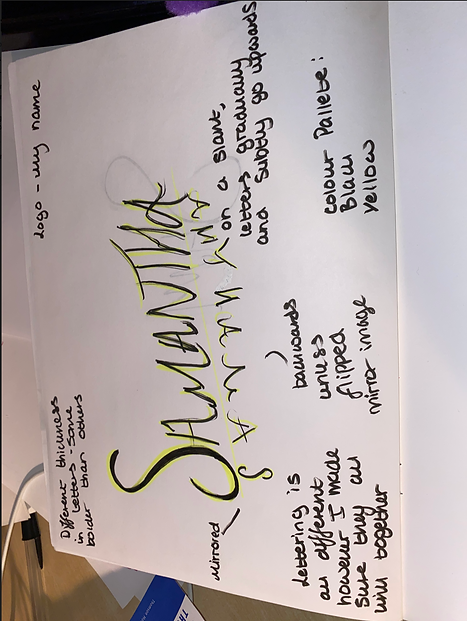 Different thickness
in letters - some
bolder than others
Logo - my name
SAMANTHA
mirrored
on a slant,
letters gradually
and subtly go upwards
Lettering is
all different
however I made
sure they all
link together
backwards
unless
flipped
mirror image
Colour Pallete:
Black
Yellow